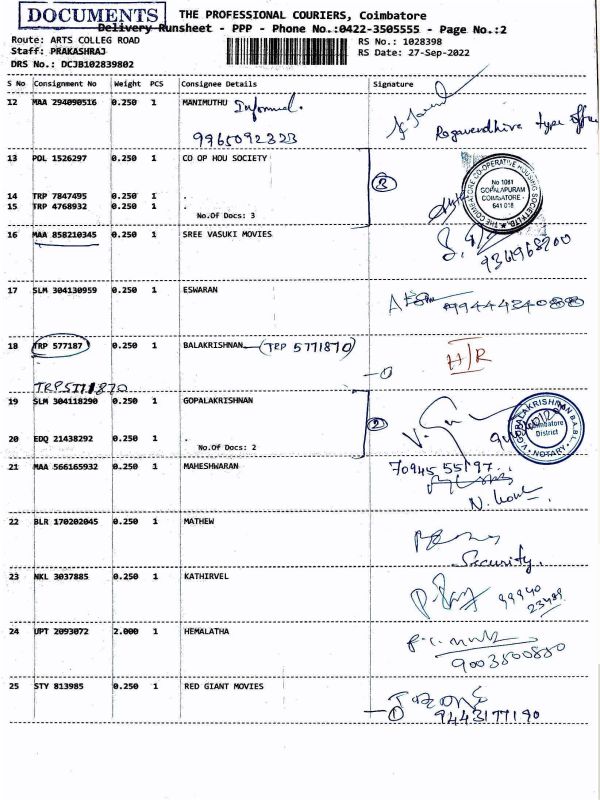 DOCUMENTS
THE PROFESSIONAL COURIERS, Coimbatore
Delivery Runsheet - PPP - Phone No.:0422-3505555 - Page No.:2
Route: ARTS COLLEG ROAD
RS No.: 1028398
Staff: PRAKASHRAJ
RS Date: 27-Sep-2022
DRS No.: DCJB102839802
S No Consignment No Weight PCS Consignee Details Signature
12 MAA 294090516 0.250 1 MANIMUTHU
9965092323
13 POL 1526297 0.250 1 CO OP HOU SOCIETY
3
THE COIMBATORE CO-OPERATIVE HOUSING SOCIETY LTD.
No 1081
GOPALAPURAM
COIMBATORE -
641 018
14 TRP 7847495 0.250 1 .
15 TRP 4768932 0.250 1 .
No.Of Docs: 3
16 MAA 858210345 0.250 1 SREE VASUKI MOVIES
17 SLM 304130959 0.250 1 ESWARAN
9944434088
18 TRP 577187 0.250 1 BALAKRISHNAN (TRP 5771870)
H/R
TRP5771870
19 SLM 304118290 0.250 1 GOPALAKRISHNAN
2
V.GOPALAKRISHNAN B.A.B.L.
Coimbatore
District
NOTARY
20 EDQ 21438292 0.250 1 .
No.Of Docs: 2
21 MAA 566165932 0.250 1 MAHESHWARAN
70945 55197
22 BLR 170202045 0.250 1 MATHEW
Security.
23 NKL 3037885 0.250 1 KATHIRVEL
99940
24 UPT 2093072 2.000 1 HEMALATHA
9003500850
25 STY 813985 0.250 1 RED GIANT MOVIES
1 9443177190